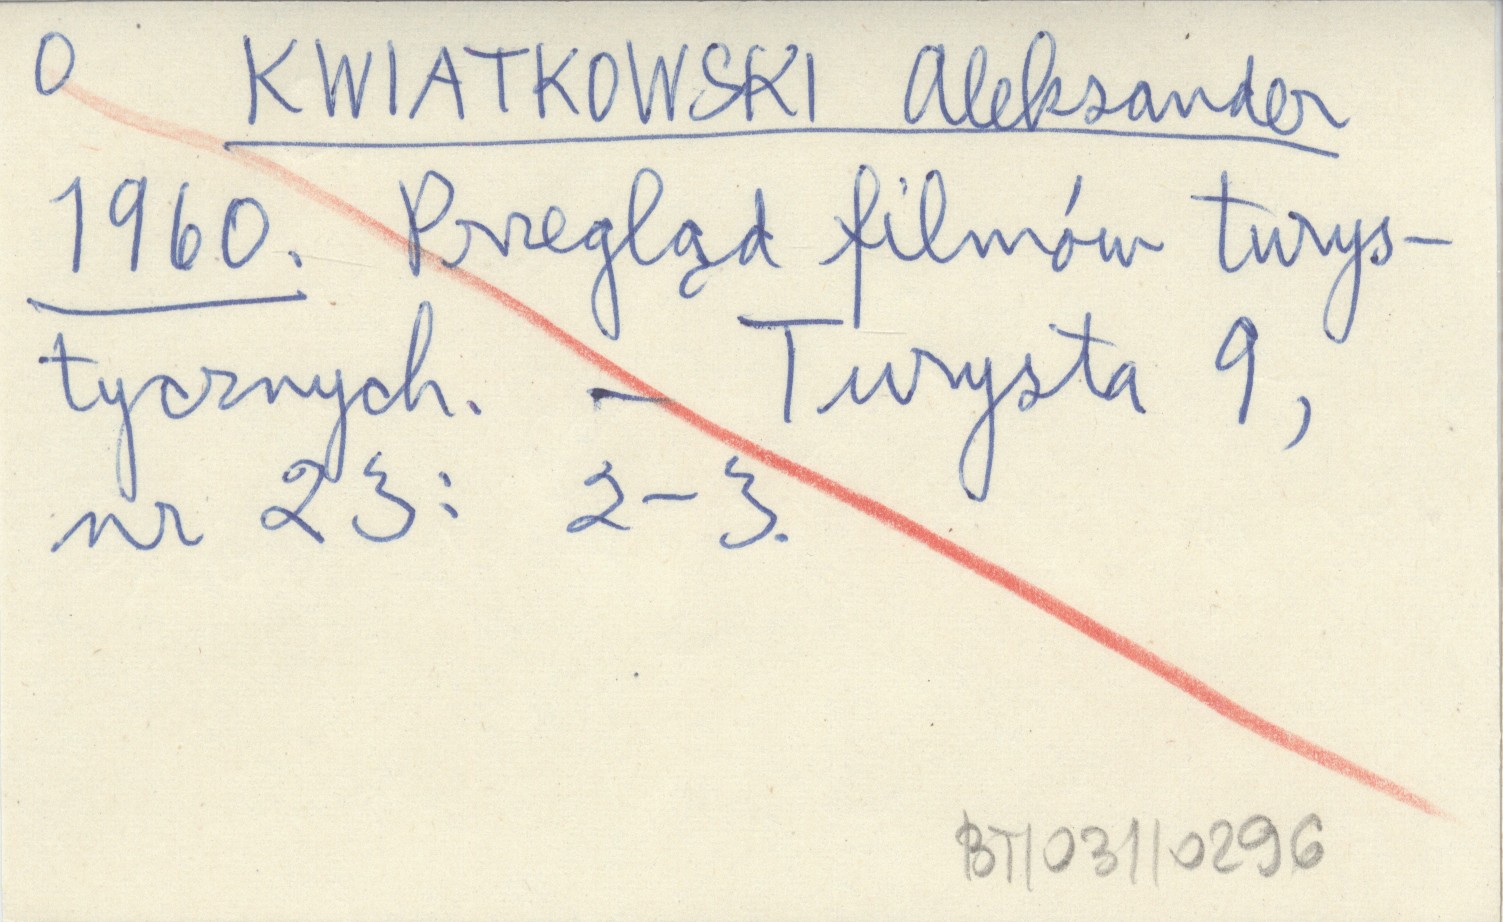 O KWIATKOWSKI Aleksander
1960. Przegląd filmów turys-
tycznych. — Turysta 9,
nr 23: 2-3.
BT/031/0296